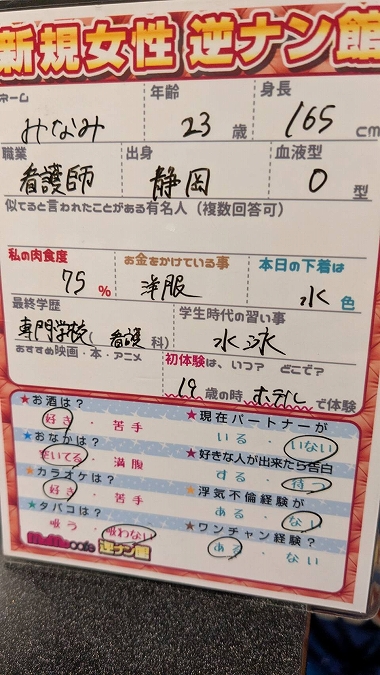 新規女性 逆ナン館
ネーム 年齢 身長
みなみ 23 歳 165 cm
職業 出身 血液型
看護師 静岡 O 型
似てると言われたことがある有名人(複数回答可)
私の肉食度 お金をかけている事 本日の下着は
75 % 洋服 水 色
最終学歴 学生時代の習い事
専門学校( 看護 科) 水泳
おすすめ映画・本・アニメ 初体験は、いつ? どこで?
19 歳の時 ホテル で体験
★お酒は? ★現在パートナーが
好き ・ 苦手 いる ・ いない
★おなかは? ★好きな人が出来たら告白
空いてる ・ 満腹 する ・ 待つ
★カラオケは? ★浮気不倫経験が
好き ・ 苦手 ある ・ ない
★タバコは? ★ワンチャン経験?
吸う ・ 吸わない ある ・ ない
cafe 逆ナン館